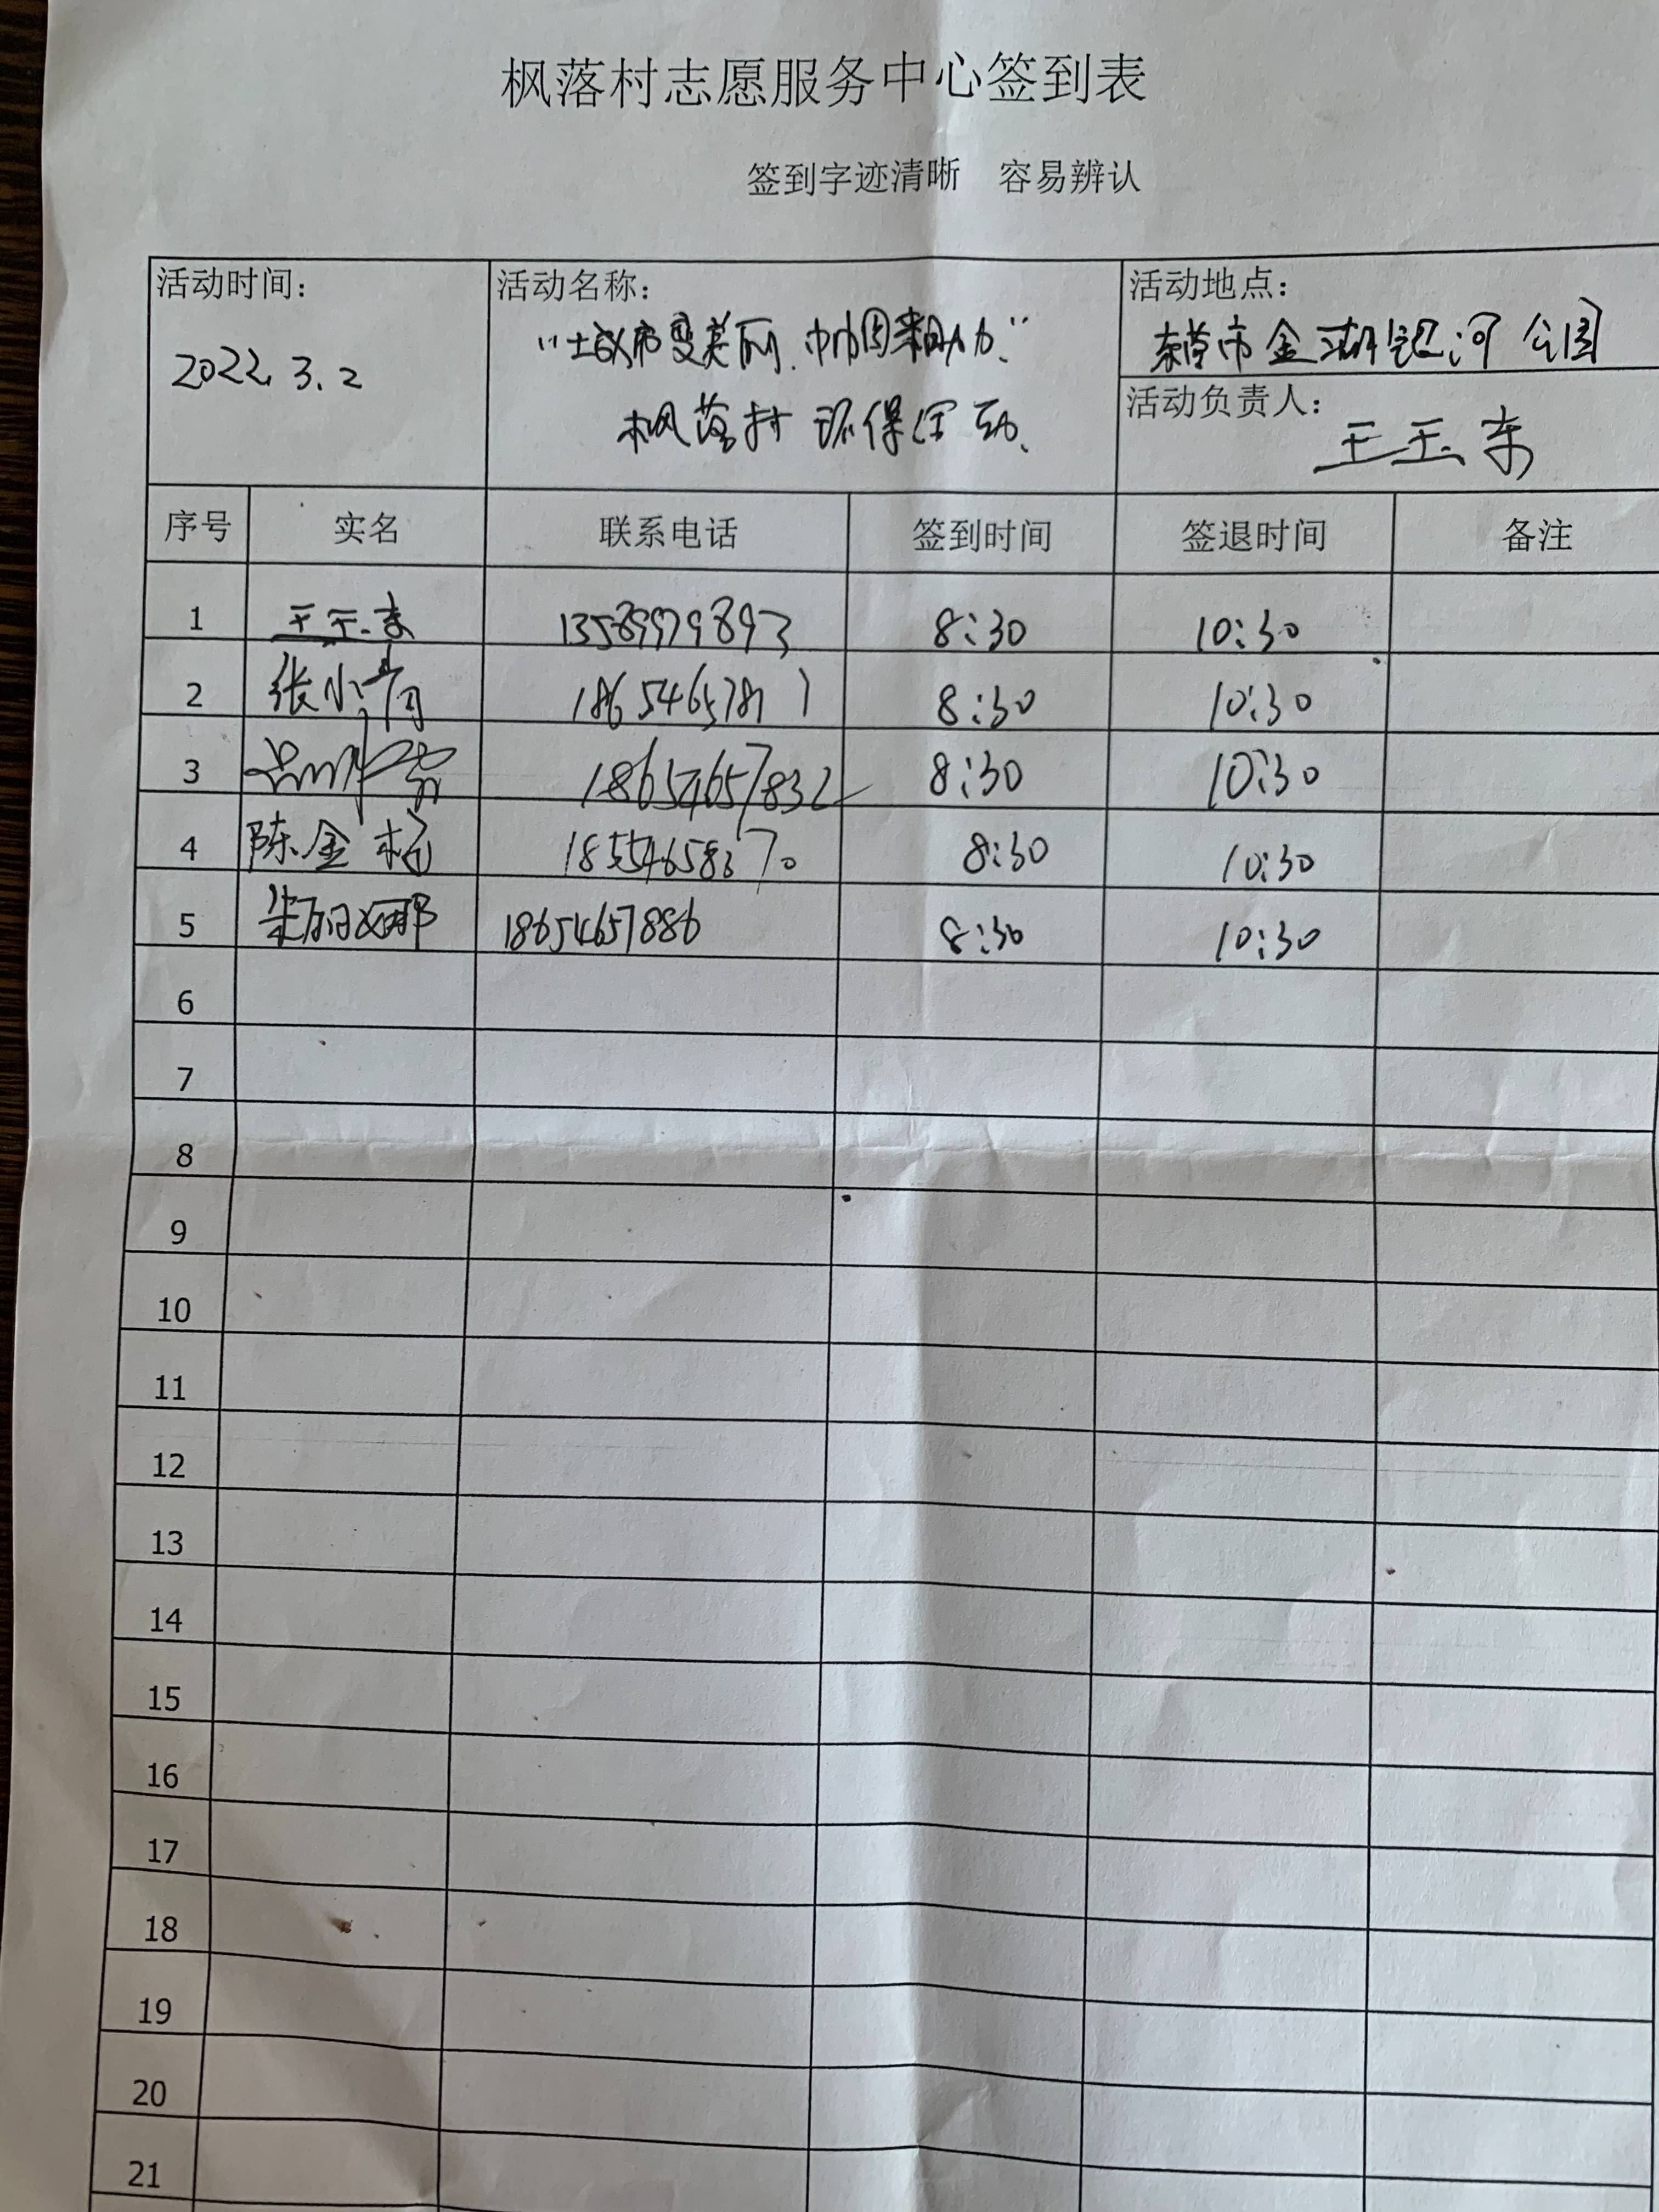 枫落村志愿服务中心签到表
签到字迹清晰 容易辨认
活动时间： 活动名称： 活动地点：
“城市变美丽、巾帼来助力” 东营市金湖银河公园
2022.3.2
活动负责人：
枫落村环保活动、 王玉东
序号 实名 联系电话 签到时间 签退时间 备注
1 王玉东 13589979893 8:30 10:30
2 张小青 8:30 10:30
3 18654657832 8:30 10:30
4 陈金梅 18554658370 8:30 10:30
5 18654657886 8:30 10:30
6
7
8
9
10
11
12
13
14
15
16
17
18
19
20
21